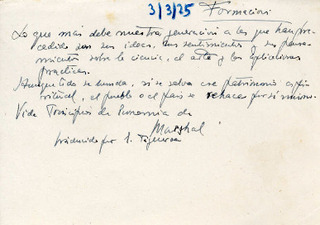 3/3/25 Formación
Lo que más debe nuestra generación a las que han pre-
cedido son sus ideas, sus sentimientos y su pensa-
miento sobre la ciencia, el arte y las aplicaciones
prácticas.
Aunque todo se hunda, si se salva ese patrimonio espi-
ritual, el pueblo o el país se rehacen por sí mismo.
Vide Principios de Economía de
Marshal
traducido por